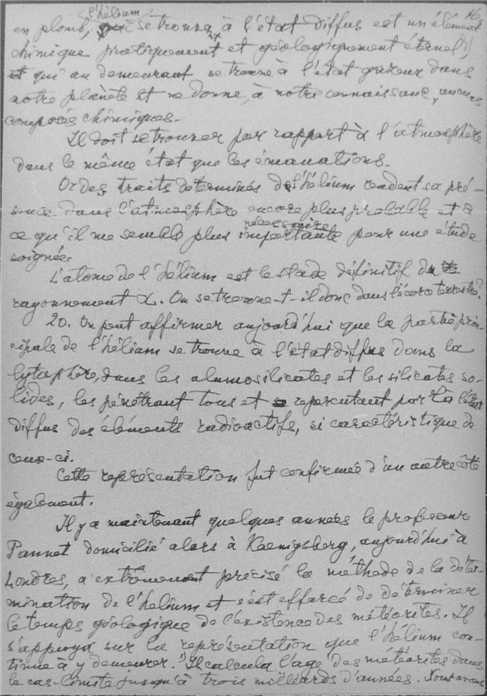 l'hélium
en plomb, se trouve à l'état diffus est un élément
chimique pratiquement et géologiquement éternel,
et qui au demeurant se trouve à l'état gazeux dans
notre planète et ne donne, à notre connaissance, aucuns
composés chimiques.
Il doit se trouver par rapport à l'atmosphère
dans le même état que les émanations.
Or des traits déterminés de l'hélium rendent sa pré-
sence dans l'atmosphère encore plus probable et à
ce qu'il me semble plus importante pour une étude
soignée
L'atome de l'hélium est le stade définitif du
rayonnement α. Où se trouve-t-il donc dans l'écorce terrestre?
20. On peut affirmer aujourd'hui que la partie prin-
cipale de l'hélium se trouve à l'état diffus dans la
dans les alumosilicates et les silicates so-
lides, les pénétrant tous et représentant par là l'état
diffus des éléments radioactifs, si caractéristique de
ceux-ci.
Cette représentation fut confirmée d'un autre côté
également.
Il y a maintenant quelques années le professeur
Pannet domicilié alors à Koenigsberg, aujourd'hui à
Londres, a extrêmement précisé la méthode de la déter-
mination de l'hélium et s'est efforcé de déterminer
le temps géologique de l'existence des météorites. Il
s'appuya sur la représentation que l'hélium con-
tinue à y demeurer. Il calcula l'age des météorites dans
le cas-limite jusqu'à trois milliards d'années.